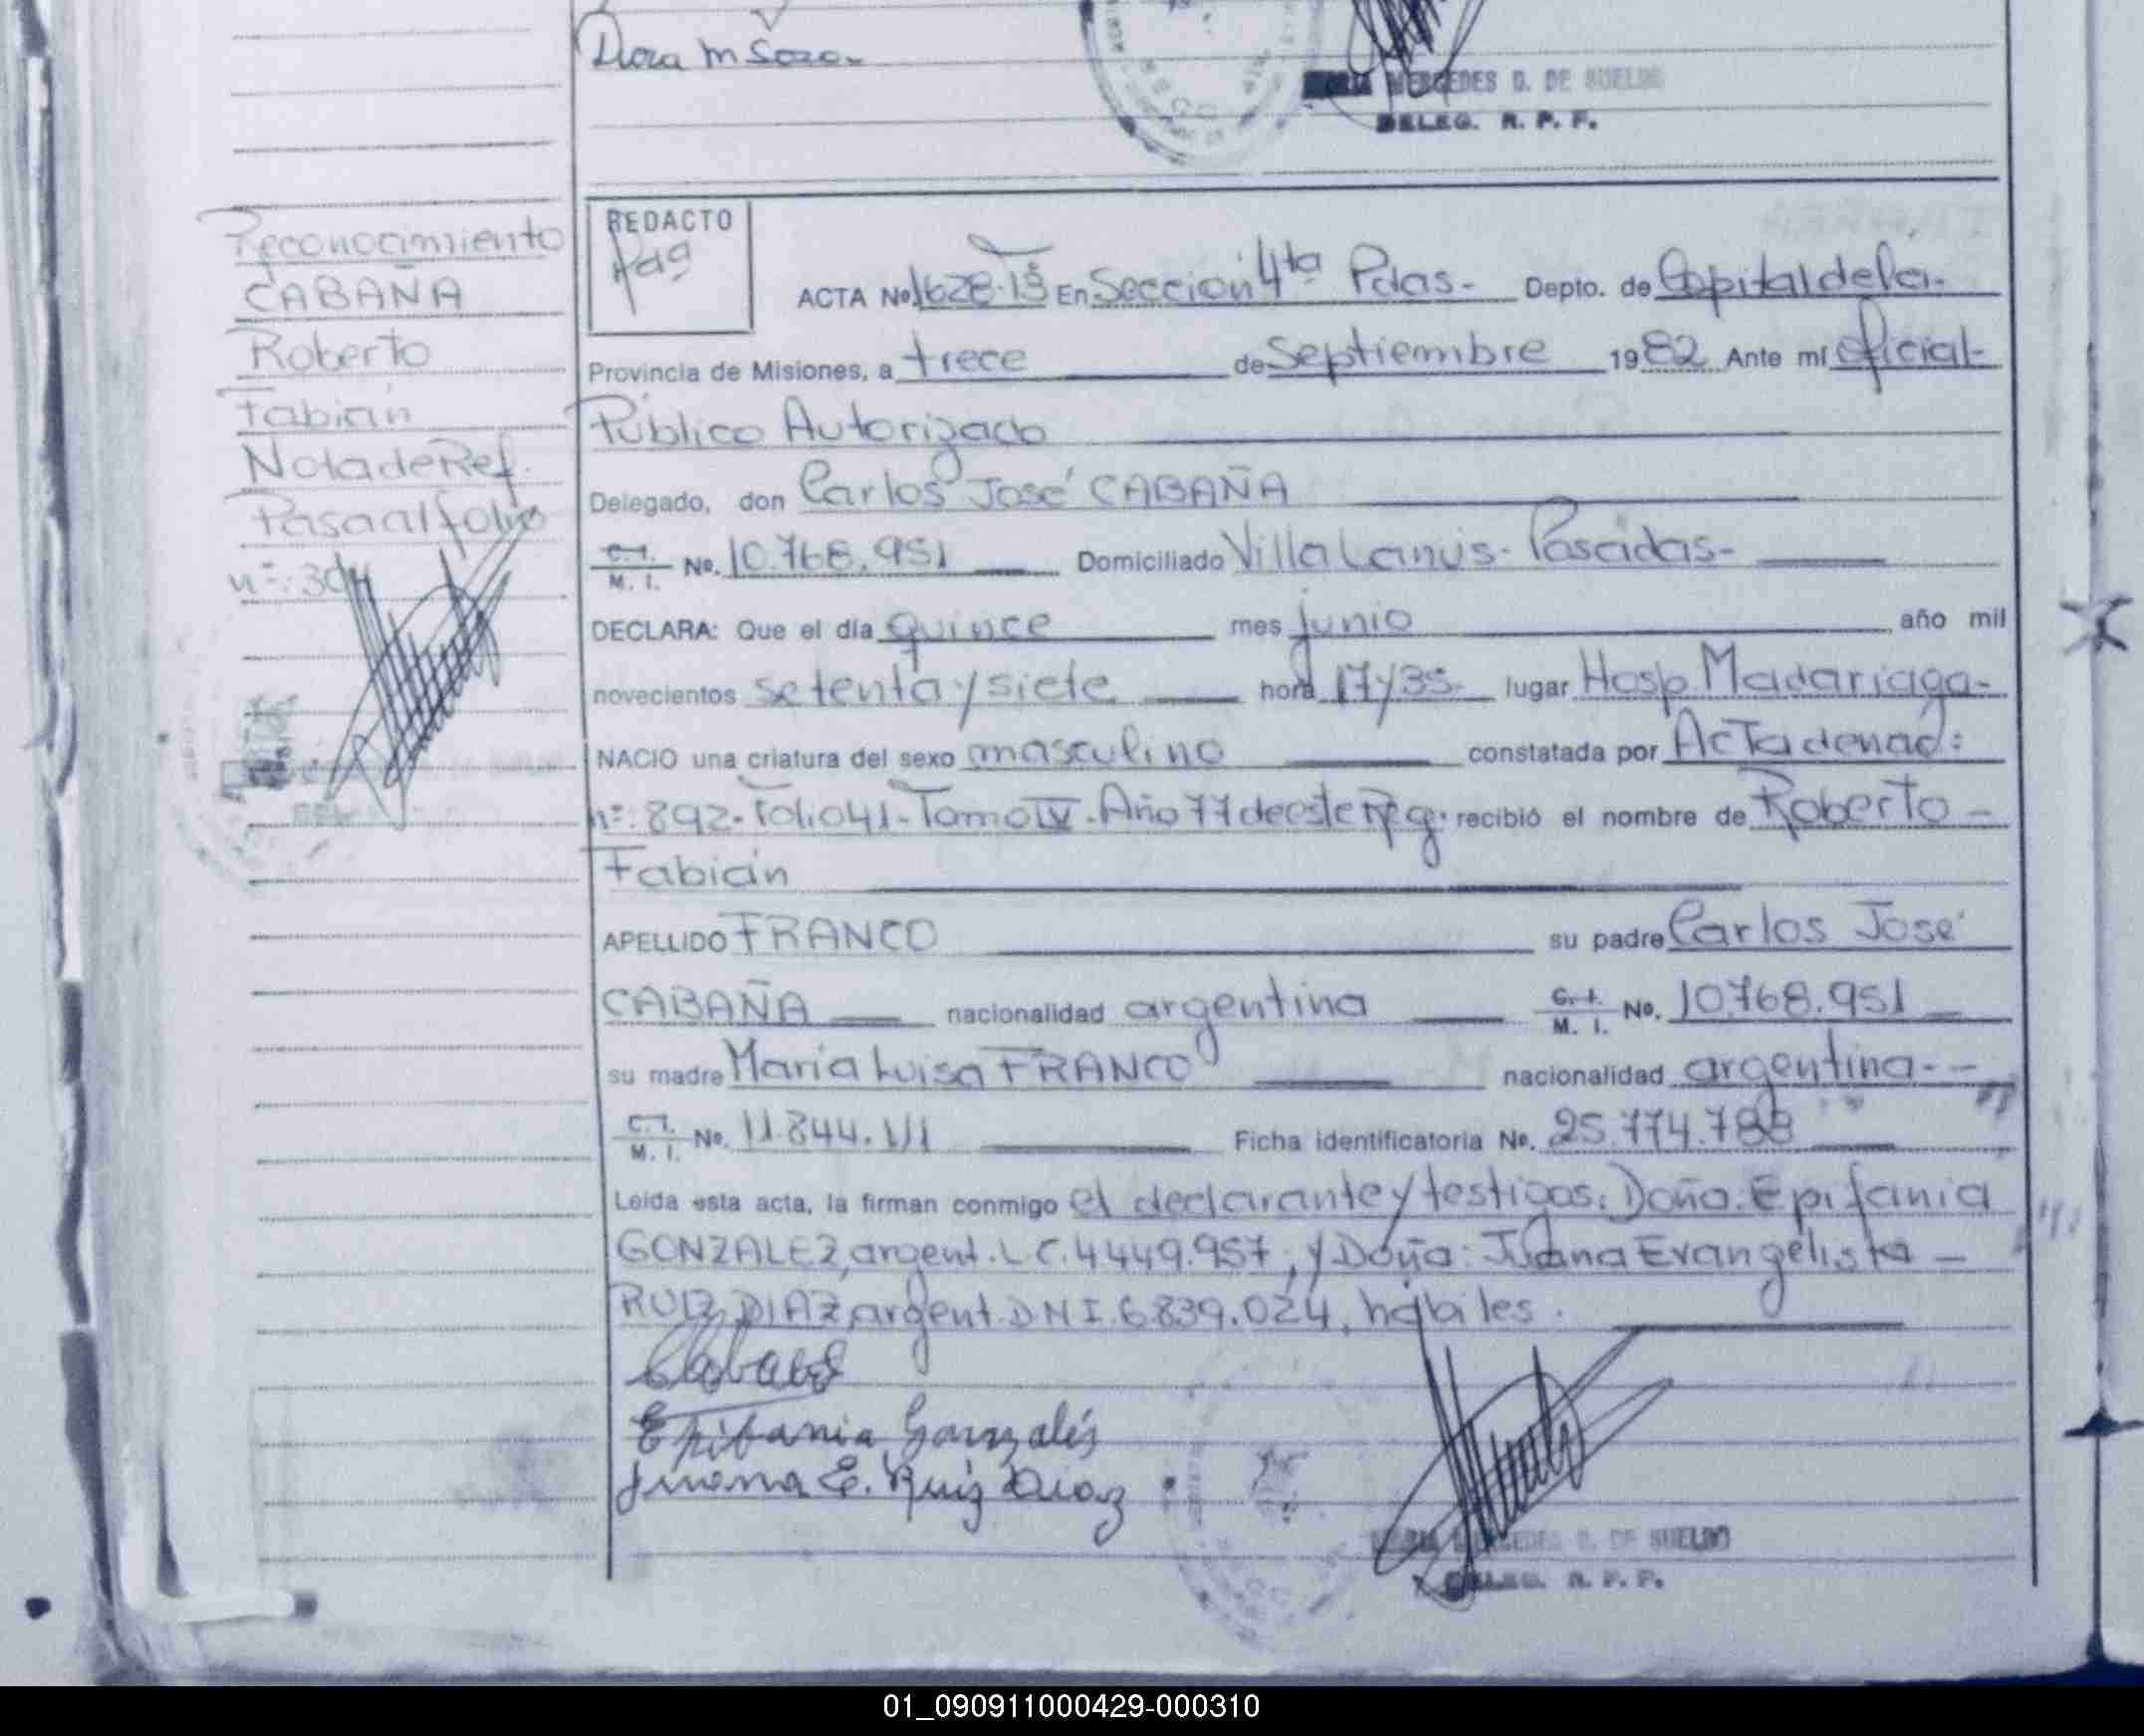 Dora M Sozo.
MERCEDES D. DE SUELDO
DELEG. R. P. F.
Reconocimiento
CABAÑA
Roberto
Fabián
Nota de Ref.
Pasa al folio
nº: 304
REDACTO
ACTA No. 1628-Tº En Sección 4ta Pdas.- Depto. de Capital de la.
Provincia de Misiones, a trece de Septiembre 1982 Ante mí oficial-
Público Autorizado
Delegado, don Carlos José CABAÑA
C.I. M. I. No. 10.768.951 Domiciliado Villa Lanús- Posadas-
DECLARA: Que el día quince mes junio año mil
novecientos setenta y siete hora 17 y 35- lugar Hosp. Madariaga-
NACIO una criatura del sexo masculino constatada por Acta de nac:
nº: 892- Folio 41- Tomo IV- Año 77 de este Reg. recibió el nombre de Roberto -
Fabián
APELLIDO FRANCO su padre Carlos José
CABAÑA nacionalidad argentina C.I. M. I. No. 10.768.951
su madre María Luisa FRANCO nacionalidad argentina- -
C.I. M. I. No. 11.844.111 Ficha identificatoria No. 25.774.788
Leída esta acta, la firman conmigo el declarante y testigos: Doña: Epifania
GONZALEZ, argent. L.C. 4449.957, y Doña: Juana Evangelista -
RUIZ DIAZ, argent. D.N.I. 6.839.024, hábiles.
Epifania Gonzalés
Juana E. Ruiz Diaz
DE SUELDO
DELEG. R. P. F.
01_090911000429-000310